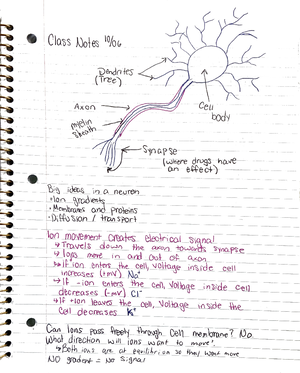 Class Notes 10/06
Dendrites
(Tree)
Axon
myelin
sheath
Cell
body
Synapse
(where drugs have
an effect)
Big ideas in a neuron
· Ion gradients
· Membranes and proteins
· Diffusion / transport
Ion movement creates electrical signal
↳ Travels down the axon towards synapse
↳ Ions move in and out of axon
↳ If + ion enters the cell, voltage inside cell
increases (+mV) Na⁺
↳ If - ion enters the cell, voltage inside cell
decreases (-mV) Cl⁻
↳ If +ion leaves the cell, voltage inside the
cell decreases K⁺
Can ions pass freely through cell membrane? No.
What direction will ions want to move?
↳ Both ions are at so they want move
NO gradient = No signal